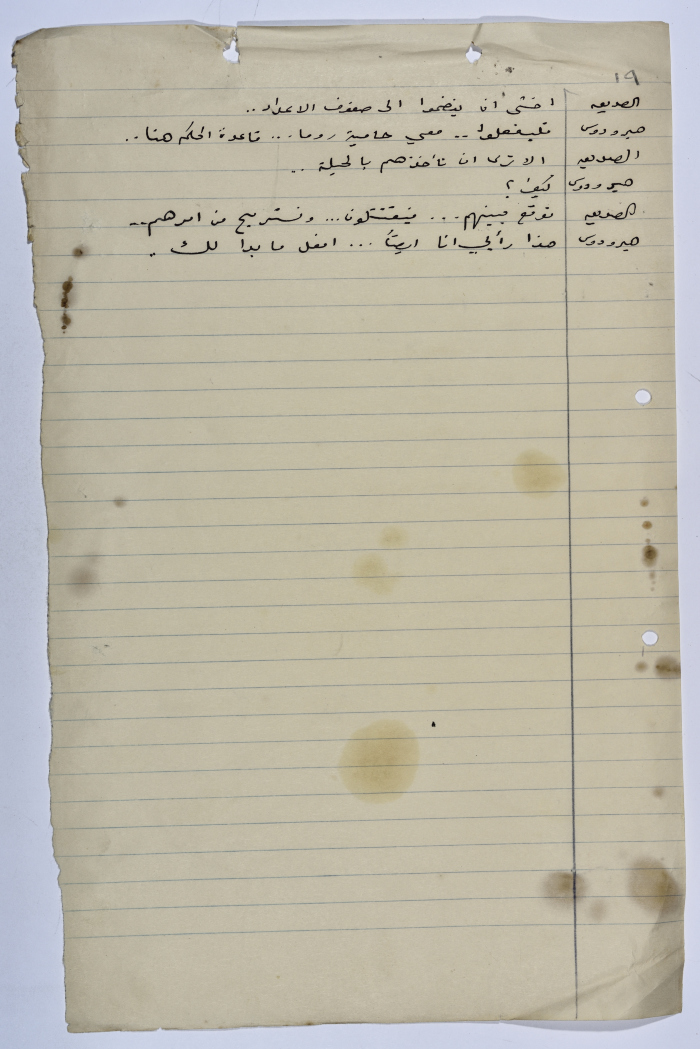 ١٩
الصديق اخشى ان ينضموا الى صفوف الاعداء ..
هيرودوس فليفعلوا .. معي حامية روما ... قاعدة الحكم هنا ..
الصديق الا ترى ان تأخذهم بالحيلة ..
هيرودوس كيف ؟
الصديق نوقع بينهم ... فيقتتلون ... ونستريح من امرهم ..
هيرودوس هذا رأيي انا ايضاً ... افعل ما بدا لك .